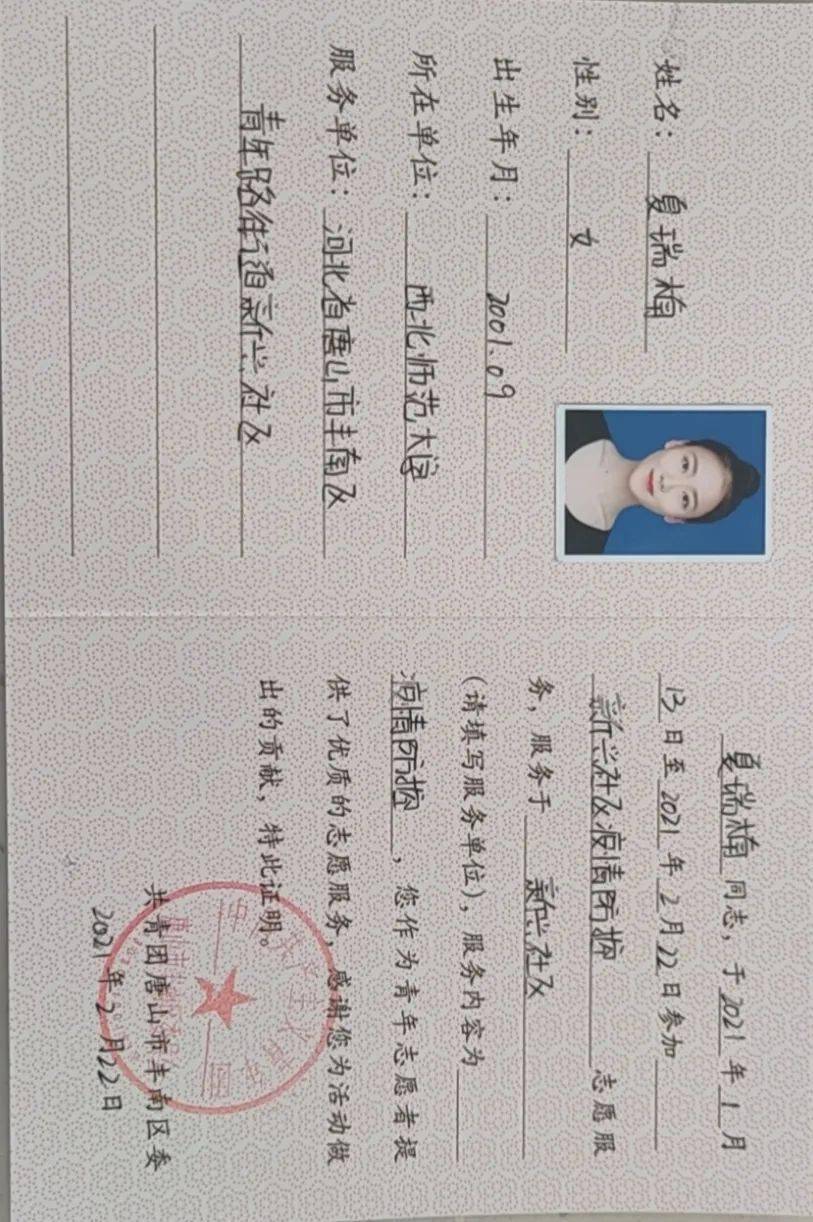 姓名：夏瑞楠
性别：女
出生年月：2001.09
所在单位：西北师范大学
服务单位：河北省唐山市丰南区
青年路街道新兴社区
夏瑞楠同志，于2021年1月
13日至2021年2月22日参加
新兴社区疫情防控志愿服
务，服务于新兴社区
（请填写服务单位），服务内容为
疫情防控，您作为青年志愿者提
供了优质的志愿服务，感谢您为活动做
出的贡献，特此证明。
共青团唐山市丰南区委
2021年2月22日